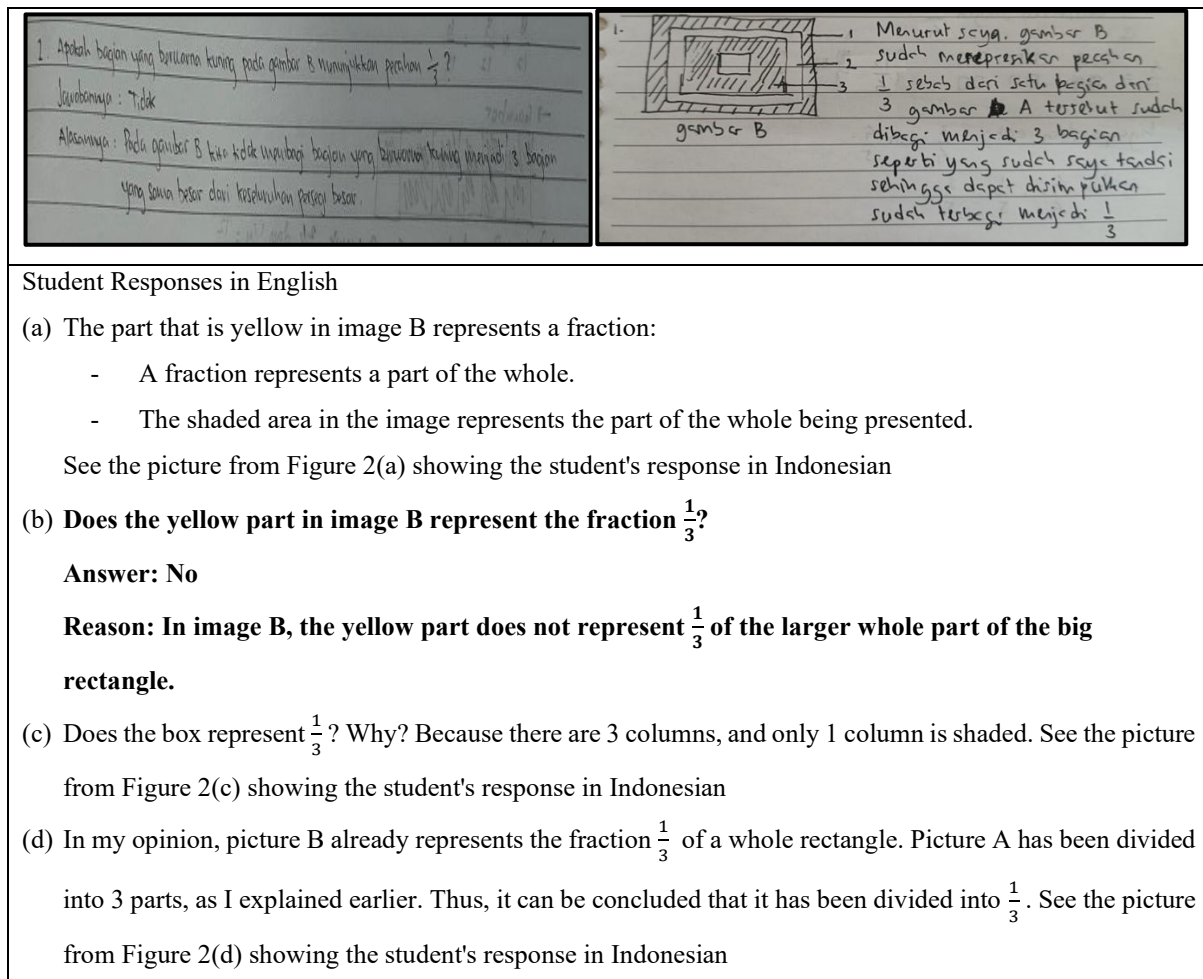 1. Apakah bagian yang berwarna kuning pada gambar B menunjukkan pecahan 1/3 ?
Jawabannya : Tidak
Alasannya : Pada gambar B kita tidak membagi bagian yang berwarna kuning menjadi 3 bagian
yang sama besar dari keseluruhan persegi besar.
1.
1
2
3
gambar B
Menurut saya, gambar B
sudah merepresikan pecahan
1/3 sebab dari satu bagian dari
gambar A tersebut sudah
dibagi menjadi 3 bagian
seperti yang sudah saya tandai
sehingga dapat disimpulkan
sudah terbagi menjadi 1/3
Student Responses in English
(a) The part that is yellow in image B represents a fraction:
- A fraction represents a part of the whole.
- The shaded area in the image represents the part of the whole being presented.
See the picture from Figure 2(a) showing the student's response in Indonesian
(b) Does the yellow part in image B represent the fraction 1/3?
Answer: No
Reason: In image B, the yellow part does not represent 1/3 of the larger whole part of the big
rectangle.
(c) Does the box represent 1/3 ? Why? Because there are 3 columns, and only 1 column is shaded. See the picture
from Figure 2(c) showing the student's response in Indonesian
(d) In my opinion, picture B already represents the fraction 1/3 of a whole rectangle. Picture A has been divided
into 3 parts, as I explained earlier. Thus, it can be concluded that it has been divided into 1/3 . See the picture
from Figure 2(d) showing the student's response in Indonesian